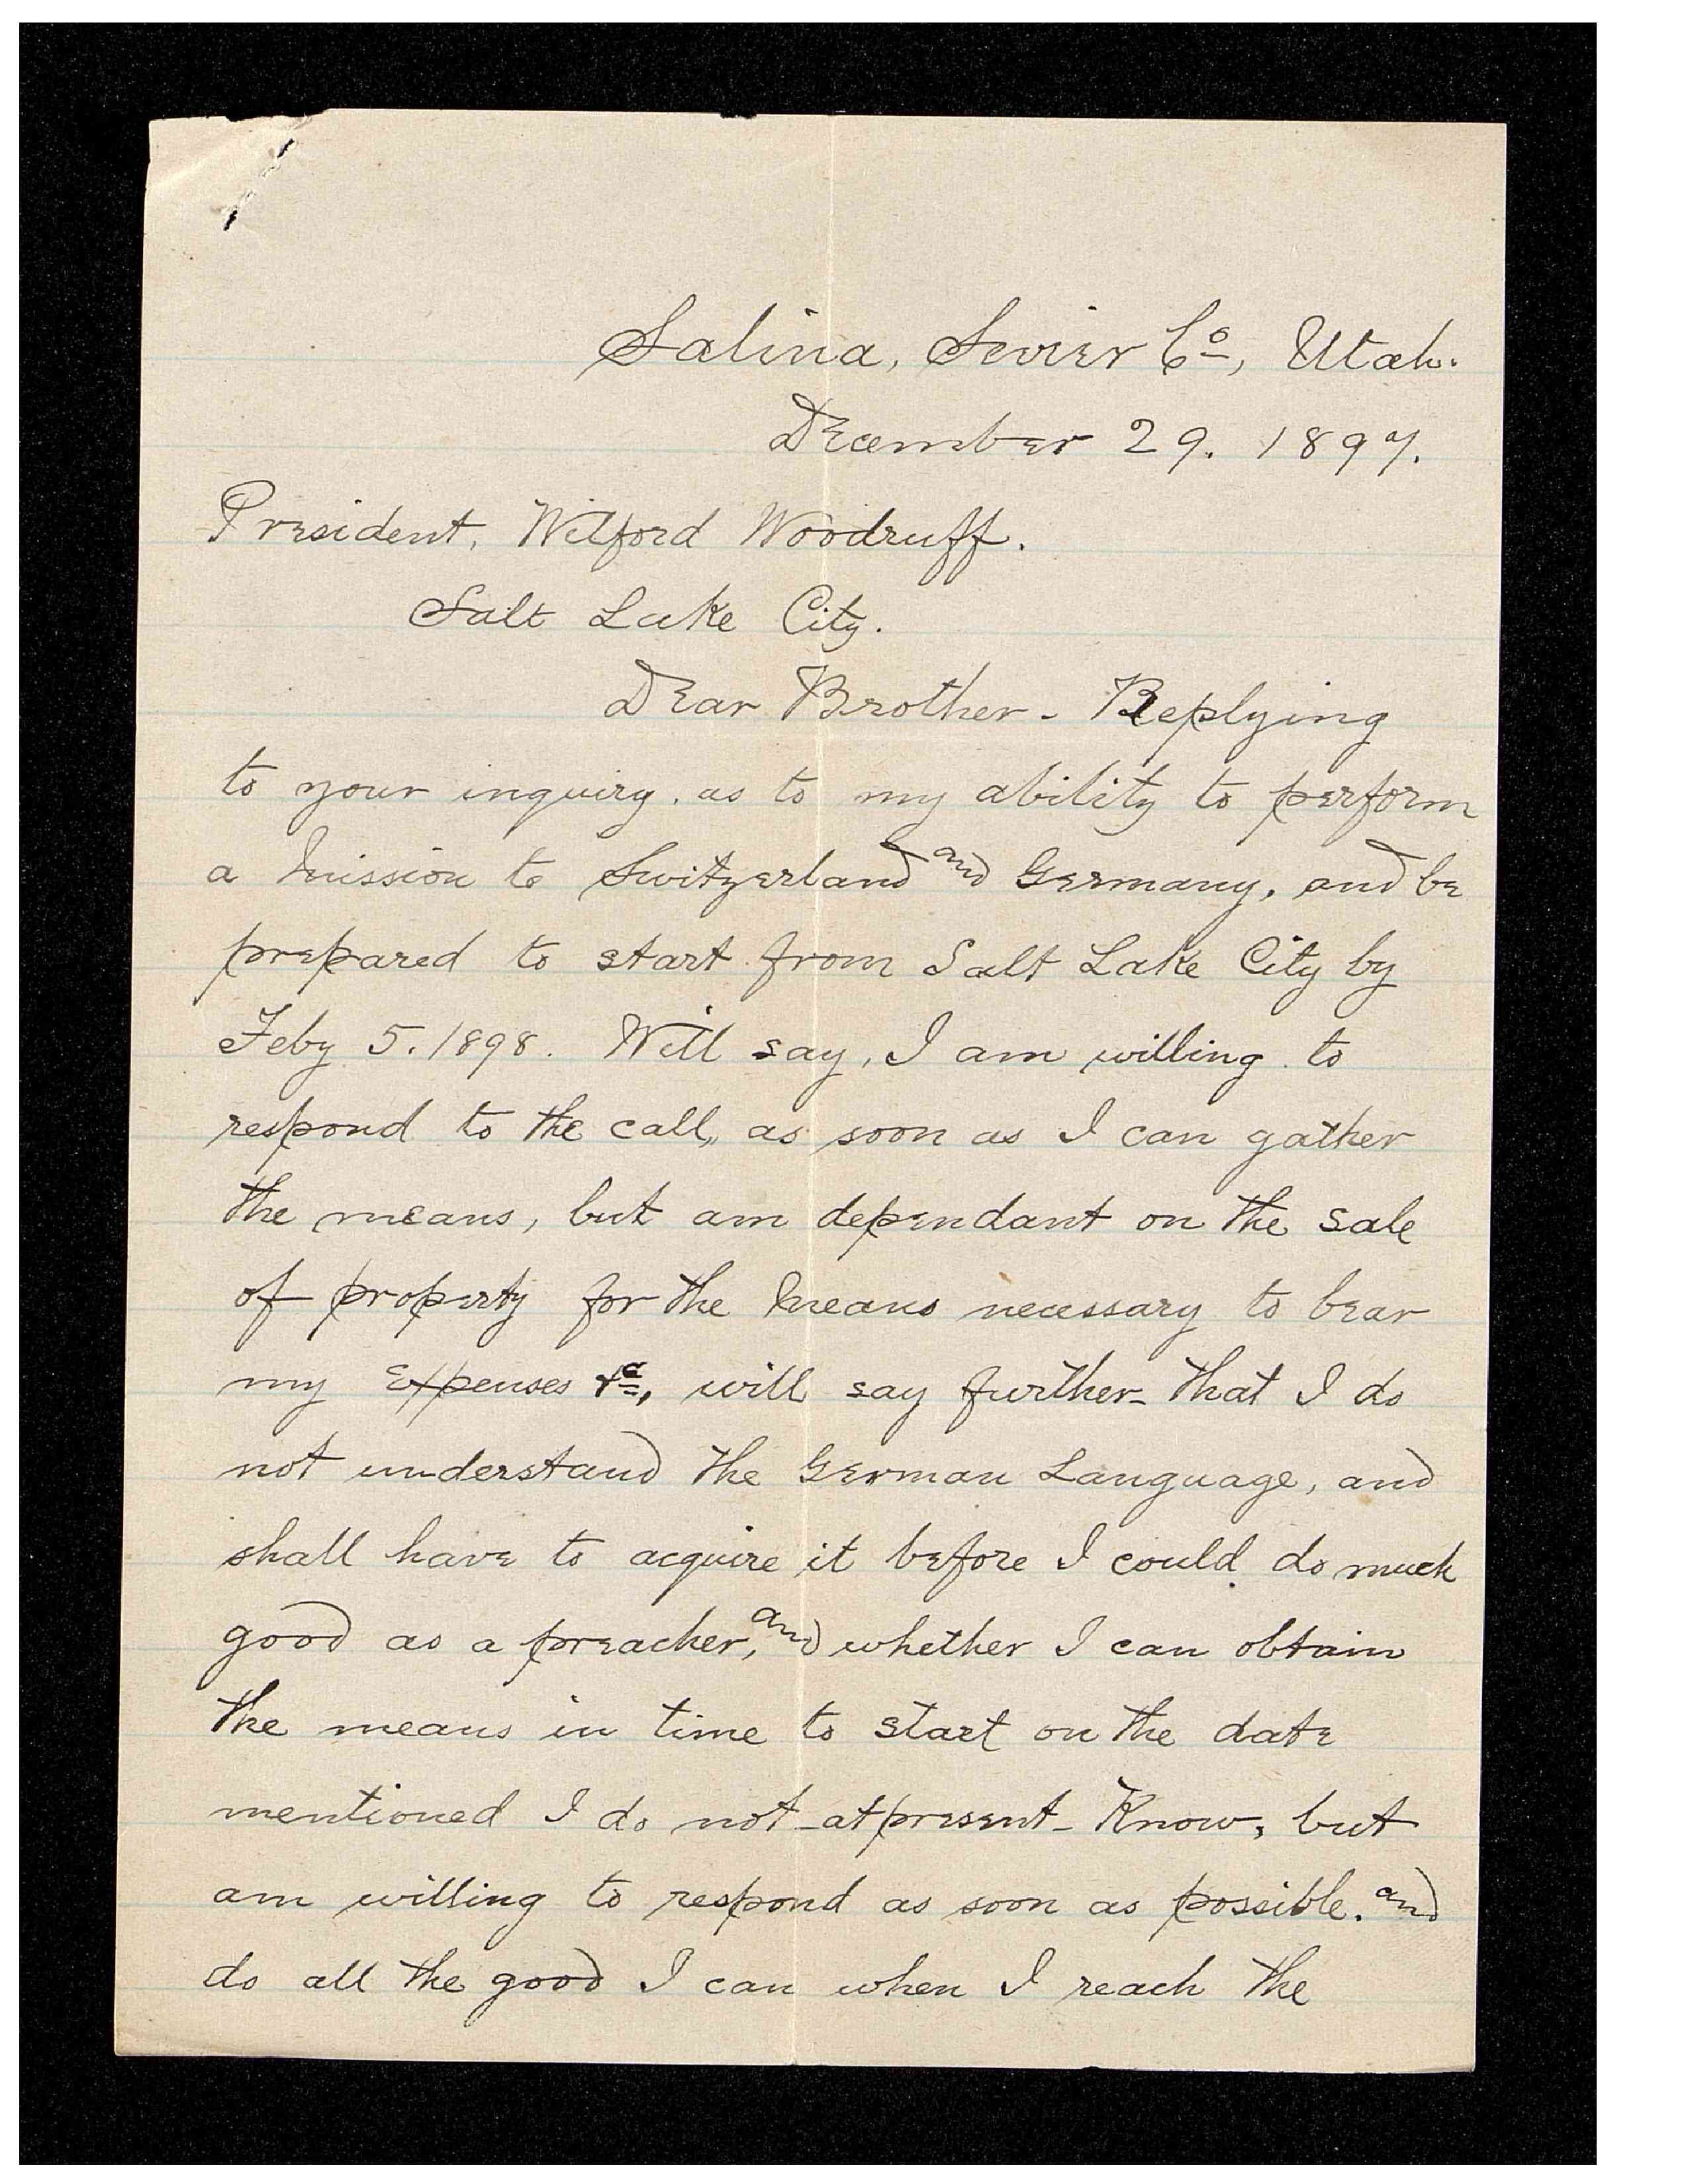 Salina, Sevier Co, Utah.
December 29. 1897.
President, Wilford Woodruff.
Salt Lake City.
Dear Brother - Replying
to your inquiry. as to my ability to perform
a mission to Switzerland and Germany, and be
prepared to start from Salt Lake City by
Feby 5. 1898. Will say, I am willing to
respond to the call, as soon as I can gather
the means, but am dependant on the sale
of property for the means necessary to bear
my Expenses &c, will say further - that I do
not understand the German Language, and
shall have to acquire it before I could do much
good as a preacher, and whether I can obtain
the means in time to start on the date
mentioned I do not - at present - Know, but
am willing to respond as soon as possible. and
do all the good I can when I reach the